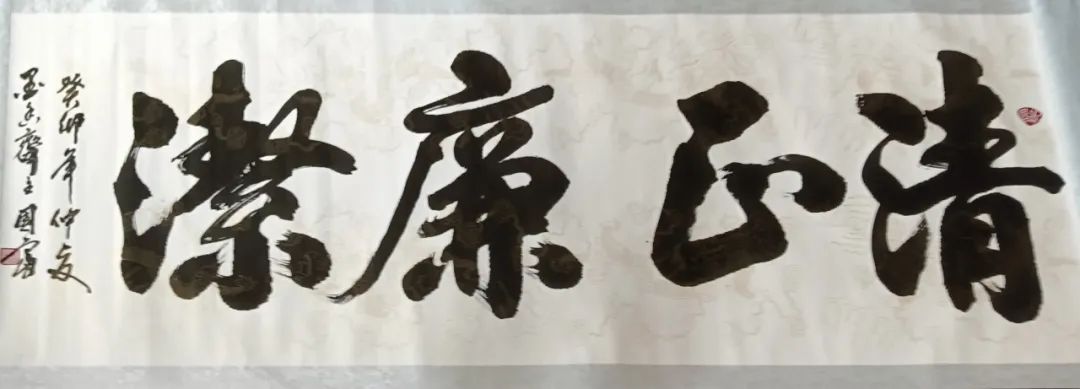 清正廉潔
癸卯年仲夏
墨香齋主國